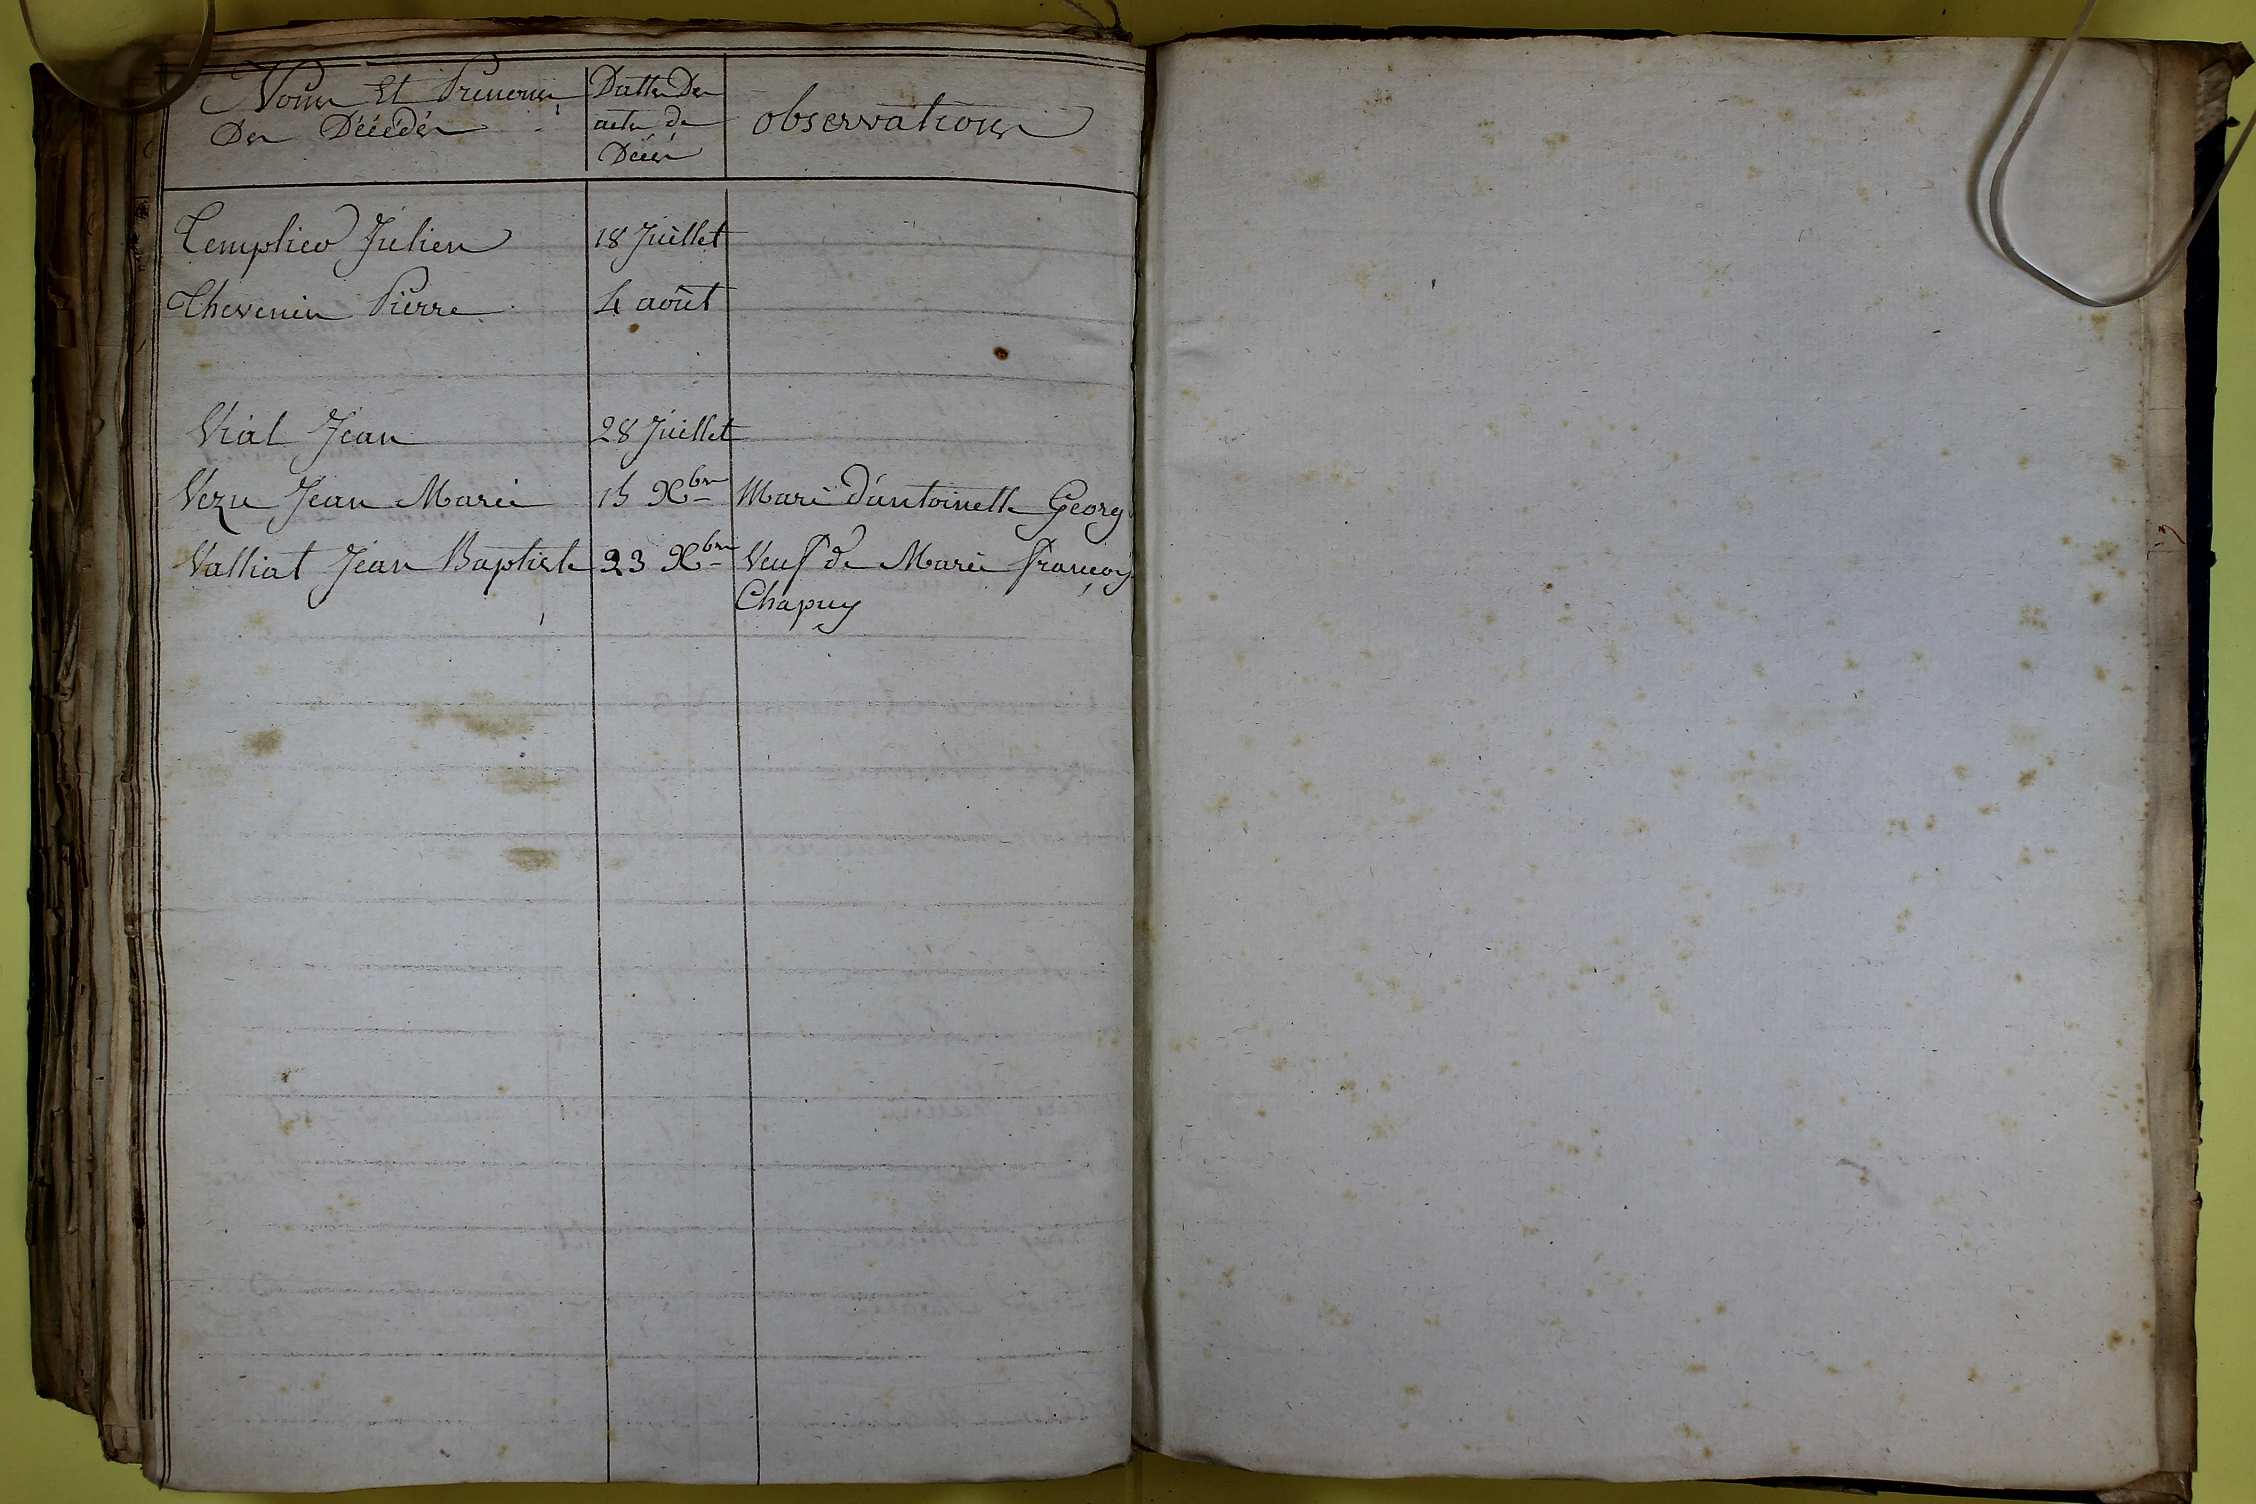 Noms Et Prenoms Dattes Des
Des Décédés actes de observations
Décès
Templier Julien 18 Juillet
Thevenin Pierre 4 août
Vial Jean 28 Juillet
Vezu Jean Marie 15 Xbre Mari d'antoinette Georg
Valliat Jean Baptiste 23 Xbre Veuf de Marie françois
Chapuy